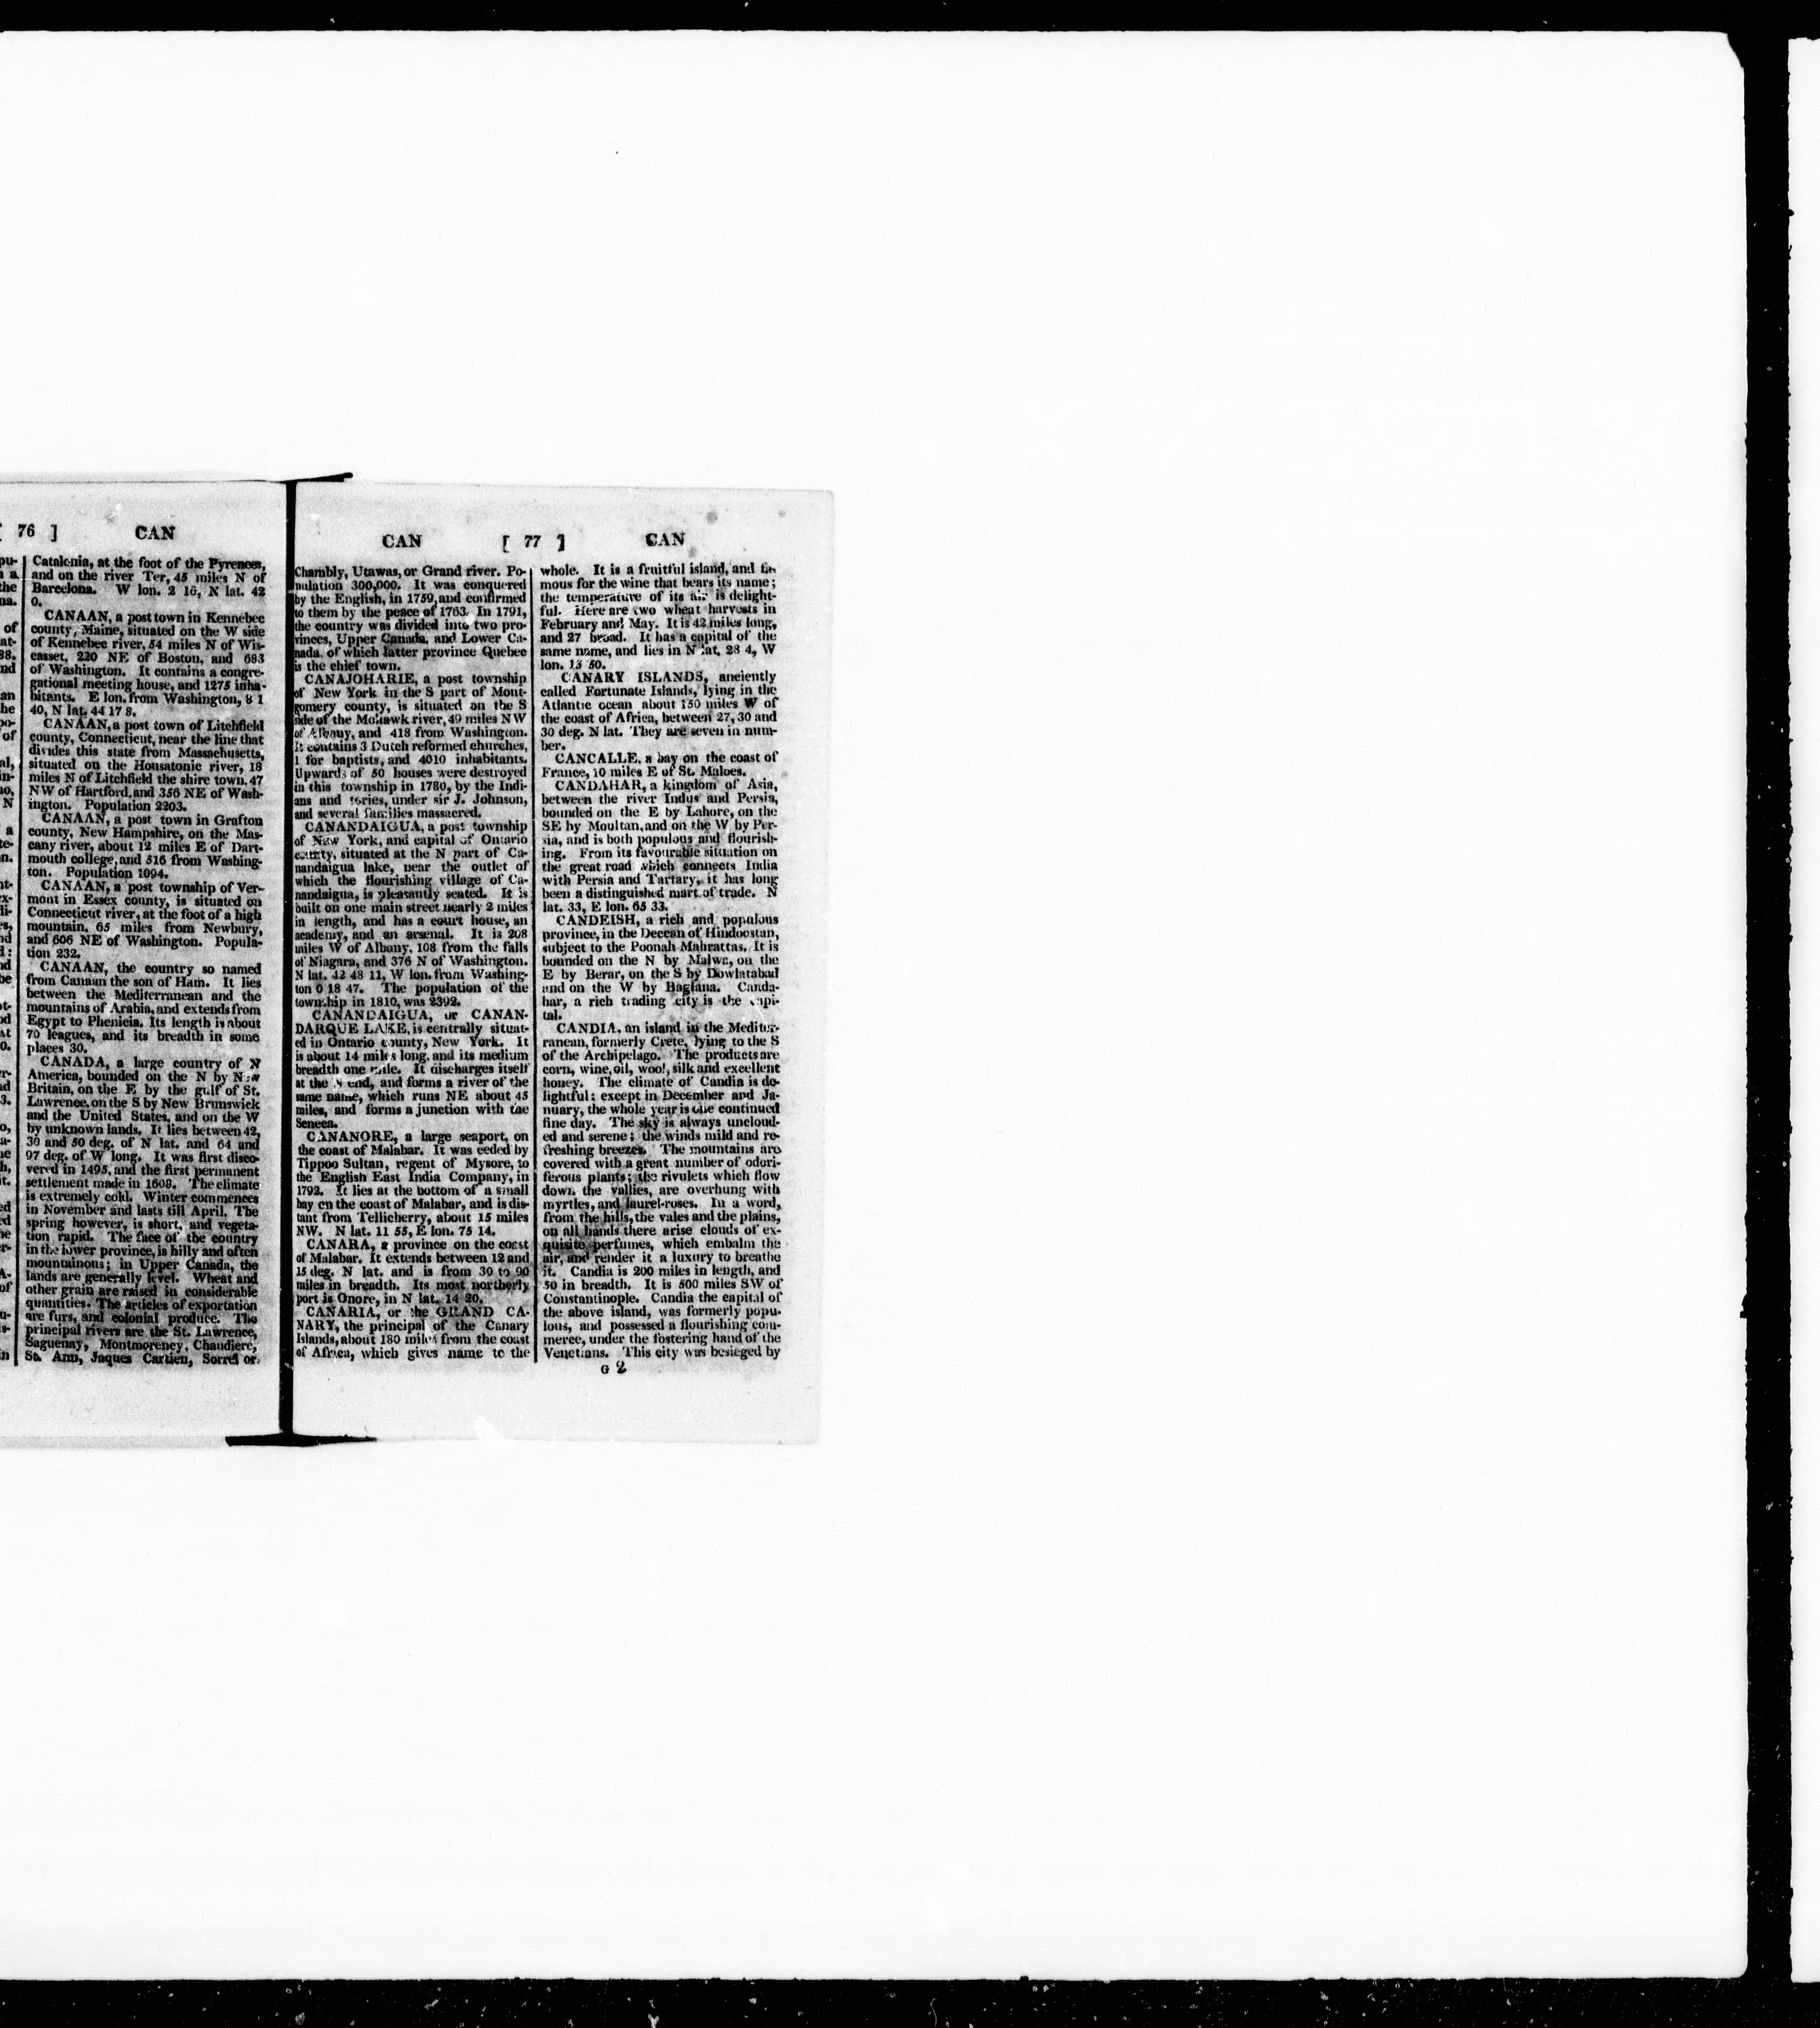 76 ] CAN
Catalonia, at the foot of the Pyrenees,
and on the river Ter, 45 miles N of
Barcelona. W lon. 2 16, N lat. 42
0.
CANAAN, a post town in Kennebec
county, Maine, situated on the W side
of Kennebec river, 54 miles N of Wis-
casset, 220 NE of Boston, and 683
of Washington. It contains a congre-
gational meeting house, and 1275 inha-
bitants. E lon. from Washington, 8 1
40, N lat. 44 17 8.
CANAAN, a post town of Litchfield
county, Connecticut, near the line that
divides this state from Massachusetts,
situated on the Housatonic river, 18
miles N of Litchfield the shire town, 47
NW of Hartford, and 356 NE of Wash-
ington. Population 2203.
CANAAN, a post town in Grafton
county, New Hampshire, on the Mas-
cany river, about 12 miles E of Dart-
mouth college, and 516 from Washing-
ton. Population 1094.
CANAAN, a post township of Ver-
mont in Essex county, is situated on
Connecticut river, at the foot of a high
mountain, 65 miles from Newbury,
and 606 NE of Washington. Popula-
tion 232.
CANAAN, the country so named
from Canaan the son of Ham. It lies
between the Mediterranean and the
mountains of Arabia, and extends from
Egypt to Phenicia. Its length is about
70 leagues, and its breadth in some
places 30.
CANADA, a large country of N
America, bounded on the N by New
Britain, on the E by the gulf of St.
Lawrence, on the S by New Brunswick
and the United States, and on the W
by unknown lands. It lies between 42,
30 and 50 deg. of N lat. and 64 and
97 deg. of W long. It was first disco-
vered in 1495, and the first permanent
settlement made in 1608. The climate
is extremely cold. Winter commences
in November and lasts till April. The
spring however, is short, and vegeta-
tion rapid. The face of the country
in the lower province, is hilly and often
mountainous; in Upper Canada, the
lands are generally level. Wheat and
other grain are raised in considerable
quantities. The articles of exportation
are furs, and colonial produce. The
principal rivers are the St. Lawrence,
Saguenay, Montmorency, Chaudiere,
St. Ann, Jaques Cartien, Sorrel or
CAN [ 77 ] CAN
Chambly, Utawas, or Grand river. Po-
pulation 300,000. It was conquered
by the English, in 1759, and confirmed
to them by the peace of 1763. In 1791,
the country was divided into two pro-
vinces, Upper Canada, and Lower Ca-
nada, of which latter province Quebec
is the chief town.
CANAJOHARIE, a post township
of New York in the S part of Mont-
gomery county, is situated on the S
side of the Mohawk river, 49 miles NW
of Albany, and 418 from Washington.
It contains 3 Dutch reformed churches,
1 for baptists, and 4010 inhabitants.
Upwards of 50 houses were destroyed
in this township in 1780, by the Indi-
ans and tories, under sir J. Johnson,
and several families massacred.
CANANDAIGUA, a post township
of New York, and capital of Ontario
county, situated at the N part of Ca-
nandaigua lake, near the outlet of
which the flourishing village of Ca-
nandaigua, is pleasantly seated. It is
built on one main street nearly 2 miles
in length, and has a court house, an
academy, and an arsenal. It is 208
miles W of Albany, 108 from the falls
of Niagara, and 376 N of Washington.
N lat. 42 48 11, W lon. from Washing-
ton 0 18 47. The population of the
township in 1810, was 2392.
CANANDAIGUA, or CANAN-
DARQUE LAKE, is centrally situat-
ed in Ontario county, New York. It
is about 14 miles long, and its medium
breadth one mile. It discharges itself
at the N end, and forms a river of the
same name, which runs NE about 45
miles, and forms a junction with the
Seneca.
CANANORE, a large seaport, on
the coast of Malabar. It was ceded by
Tippoo Sultan, regent of Mysore, to
the English East India Company, in
1792. It lies at the bottom of a small
bay on the coast of Malabar, and is dis-
tant from Tellicherry, about 15 miles
NW. N lat. 11 55, E lon. 75 14.
CANARA, a province on the coast
of Malabar. It extends between 12 and
15 deg. N lat. and is from 30 to 90
miles in breadth. Its most northerly
port is Onore, in N lat. 14 20.
CANARIA, or the GRAND CA-
NARY, the principal of the Canary
Islands, about 180 miles from the coast
of Africa, which gives name to the
whole. It is a fruitful island, and fa-
mous for the wine that bears its name;
the temperature of its air is delight-
ful. Here are two wheat harvests in
February and May. It is 42 miles long,
and 27 broad. It has a capital of the
same name, and lies in N lat. 28 4, W
lon. 13 50.
CANARY ISLANDS, anciently
called Fortunate Islands, lying in the
Atlantic ocean about 150 miles W of
the coast of Africa, between 27,30 and
30 deg. N lat. They are seven in num-
ber.
CANCALLE, a bay on the coast of
France, 10 miles E of St. Maloes.
CANDAHAR, a kingdom of Asia,
between the river Indus and Persia,
bounded on the E by Lahore, on the
SE by Moultan, and on the W by Per-
sia, and is both populous and flourish-
ing. From its favourable situation on
the great road which connects India
with Persia and Tartary, it has long
been a distinguished mart of trade. N
lat. 33, E lon. 65 33.
CANDEISH, a rich and populous
province, in the Deccan of Hindoostan,
subject to the Poonah Mahrattas. It is
bounded on the N by Malwa, on the
E by Berar, on the S by Dowlatabad
and on the W by Baglana. Canda-
har, a rich trading city is the capi-
tal.
CANDIA, an island in the Mediter-
ranean, formerly Crete, lying to the S
of the Archipelago. The products are
corn, wine, oil, wool, silk and excellent
honey. The climate of Candia is de-
lightful: except in December and Ja-
nuary, the whole year is one continued
fine day. The sky is always uncloud-
ed and serene; the winds mild and re-
freshing breezes. The mountains are
covered with a great number of odori-
ferous plants; the rivulets which flow
down the vallies, are overhung with
myrtles, and laurel-roses. In a word,
from the hills, the vales and the plains,
on all hands there arise clouds of ex-
quisite perfumes, which embalm the
air, and render it a luxury to breathe
it. Candia is 200 miles in length, and
50 in breadth. It is 500 miles SW of
Constantinople. Candia the capital of
the above island, was formerly popu-
lous, and possessed a flourishing com-
merce, under the fostering hand of the
Venetians. This city was besieged by
G 2